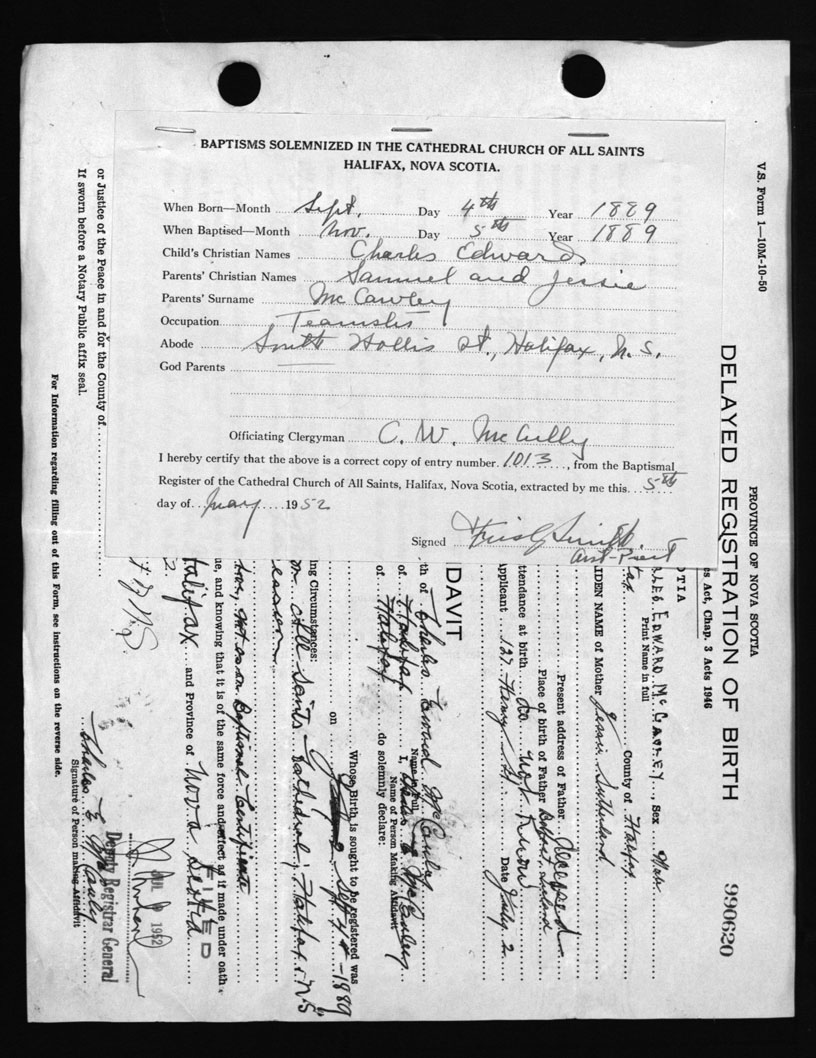 BAPTISMS SOLEMNIZED IN THE CATHEDRAL CHURCH OF ALL SAINTS
HALIFAX, NOVA SCOTIA.
When Born—Month Sept. Day 4th Year 1889
When Baptised—Month Nov. Day 5th Year 1889
Child's Christian Names Charles Edward
Parents' Christian Names Samuel and Jessie
Parents' Surname McCawley
Occupation
Abode South Hollis St., Halifax, N.S.
God Parents
Officiating Clergyman C. W. McCully
I hereby certify that the above is a correct copy of entry number 1013, from the Baptismal
Register of the Cathedral Church of All Saints, Halifax, Nova Scotia, extracted by me this 5th
day of May 1952
Signed
V.S. Form 1—10M-10-50
PROVINCE OF NOVA SCOTIA
DELAYED REGISTRATION OF BIRTH
990620
es Act, Chap. 3 Acts 1946
OTIA
LES EDWARD McCAULEY Sex Male
Print Name in full
fax County of Halifax
IDEN NAME of Mother Jessie Sutherland
Present address of Father deceased
Place of birth of Father Belfast, Ireland
ttendance at birth do not know
applicant 127 Henry St. Date July 2
DAVIT
th of Charles Edward McCauley
Name in Full
of Halifax I, Charles E McCauley
Name of Person Making Affidavit
of Halifax do solemnly declare:
Whose Birth is sought to be registered was
on Sept 4th - 1889
ing Circumstances:
All Saints Cathedral, Halifax, N.S.
reason
Baptismal Certificate
ue, and knowing that it is of the same force and effect as if made under oath
FILED
Halifax and Province of Nova Scotia
2.
JUL 1952
Deputy Registrar General
Charles E McCauley
Signature of Person making Affidavit
or Justice of the Peace in and for the County of
If sworn before a Notary Public affix seal.
For Information regarding filling out of this Form, see instructions on the reverse side.